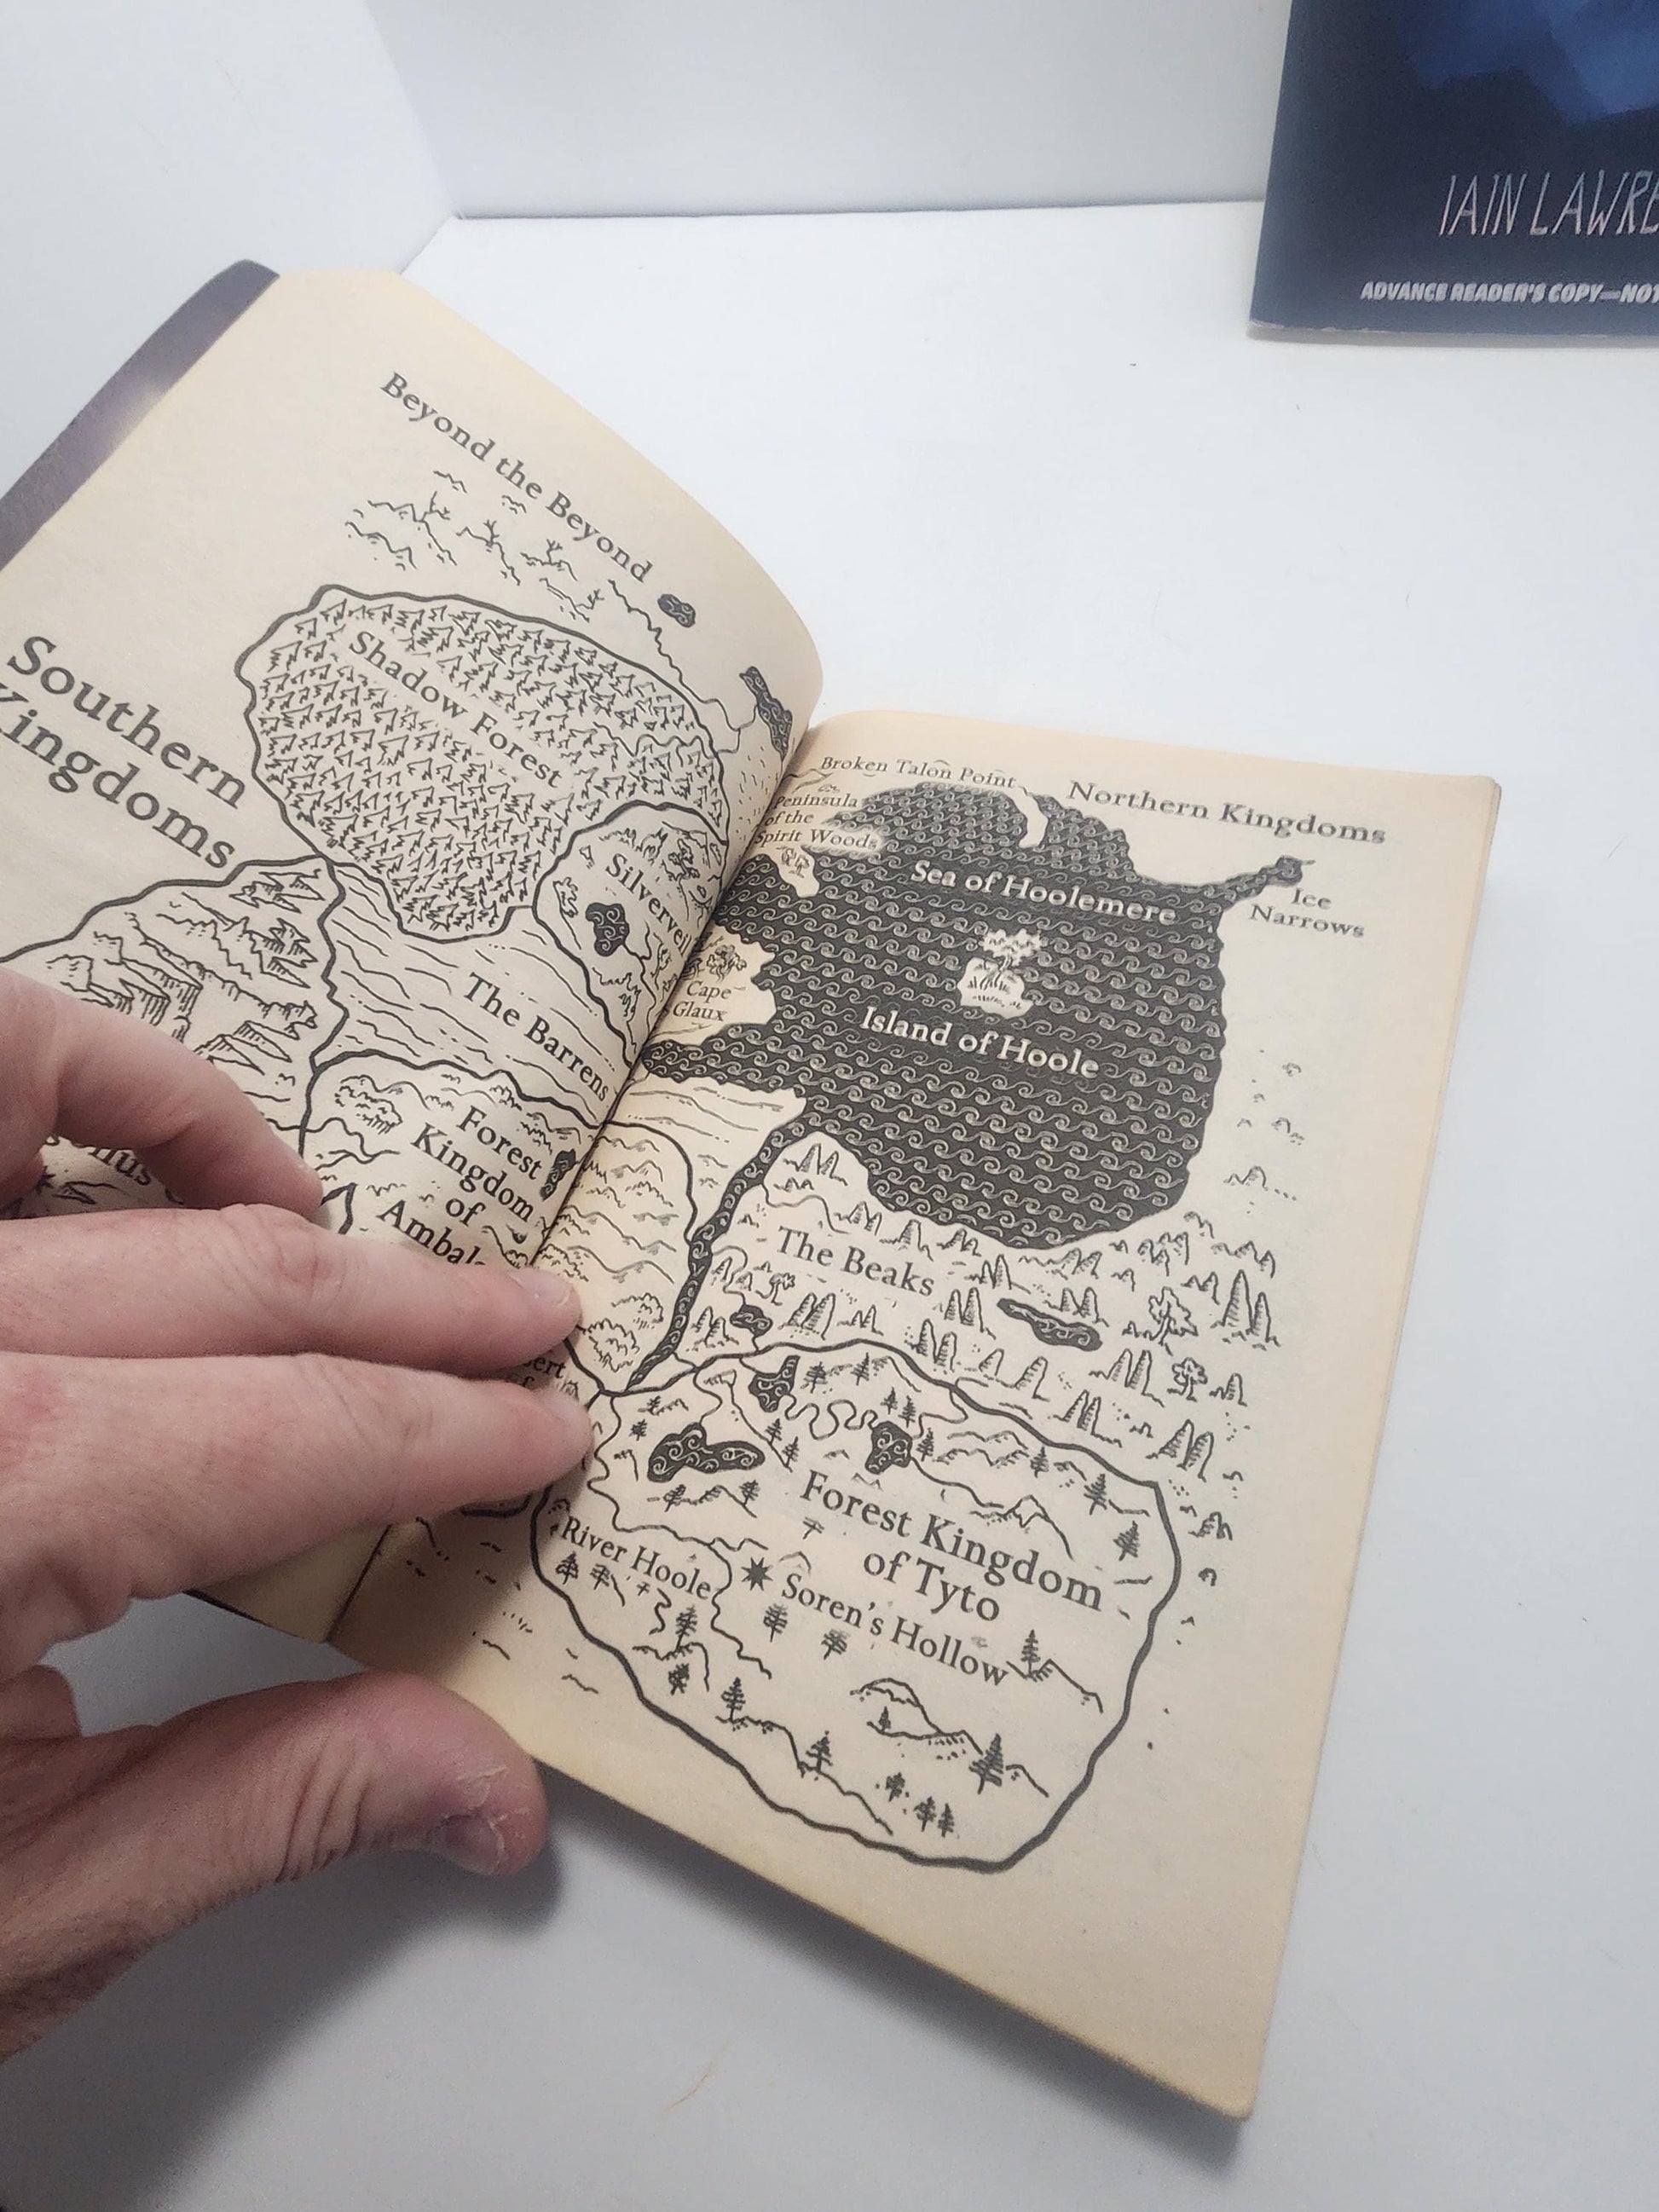 Beyond the Beyond
Southern
Kingdoms
Shadow Forest
Silverveil
The Barrens
Forest
Kingdom
of
Broken Talon Point
Northern Kingdoms
Peninsula
of the
Spirit Woods
Sea of Hoolemere
Ice
Narrows
Cape
Glaux
Island of Hoole
The Beaks
Forest Kingdom
of Tyto
River Hoole
Soren's Hollow
IAIN
ADVANCE READER'S COPY—NOT